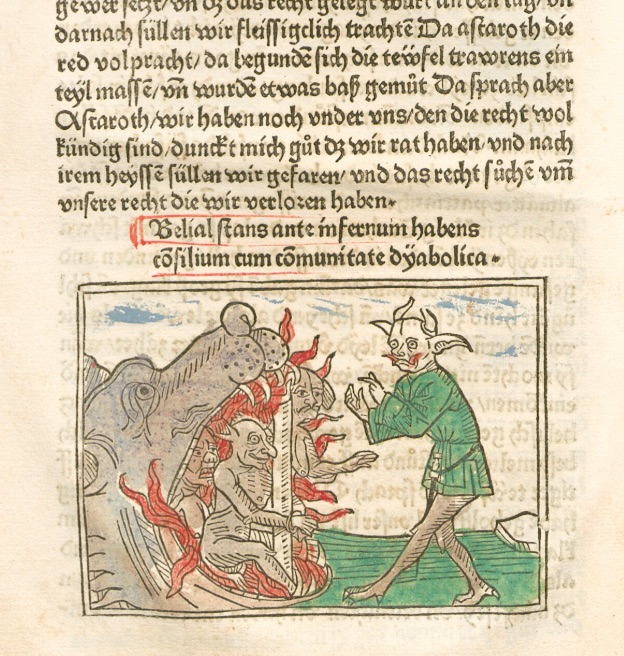 gewer setzt/ vn̄ dz das recht gelegt wurt an den tag/ vn̄
darnach süllen wir fleissigclich trachtē Da astaroth die
red volpracht/ da begundē sich die tewfel trawrens ein
teyl massē/ vn̄ wurdē etwas baß gemůt Da sprach aber
Astaroth/ wir haben noch vnder vns/ den die recht wol
kündig sind/ dunckt mich gůt dz wir rat haben/ vnd nach
irem heyssē süllen wir gefaren/ vnd das recht sůchē vm̄
vnsere recht die wir verlozen haben.
Belial stans ante infernum habens
cōsilium cum cōmunitate dÿabolica.